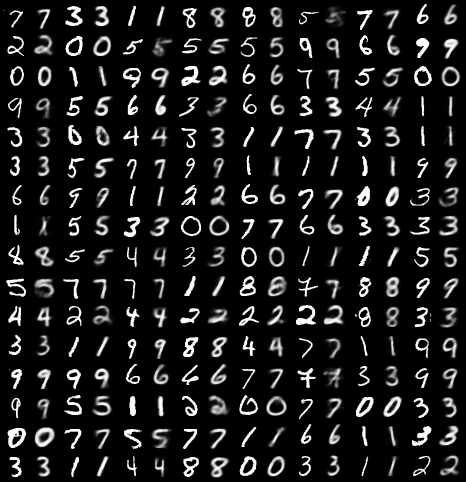 7 7 3 3 1 1 8 8 8 8 5 5 7 7 6 6
2 2 0 0 5 5 5 5 5 5 9 9 6 6 9 9
0 0 1 1 9 9 2 2 6 6 7 7 5 5 0 0
9 9 5 5 6 6 3 3 6 6 3 3 4 4 1 1
3 3 0 0 4 4 3 3 1 1 7 7 3 3 1 1
3 3 5 5 7 7 9 9 1 1 1 1 1 1 9 9
6 6 9 9 1 1 2 2 6 6 7 7 0 0 3 3
1 1 5 5 3 3 0 0 7 7 6 6 3 3 3 3
8 8 5 5 4 4 3 3 0 0 1 1 1 1 5 5
5 5 7 7 7 7 1 1 8 8 7 7 8 8 9 9
4 4 2 2 4 4 2 2 2 2 2 2 8 8 3 3
3 3 1 1 9 9 8 8 4 4 7 7 1 1 9 9
9 9 9 9 6 6 6 6 7 7 7 7 3 3 9 9
9 9 5 5 1 1 2 2 0 0 7 7 0 0 3 3
0 0 7 7 5 5 7 7 1 1 6 6 1 1 3 3
3 3 1 1 4 4 8 8 0 0 3 3 1 1 2 2